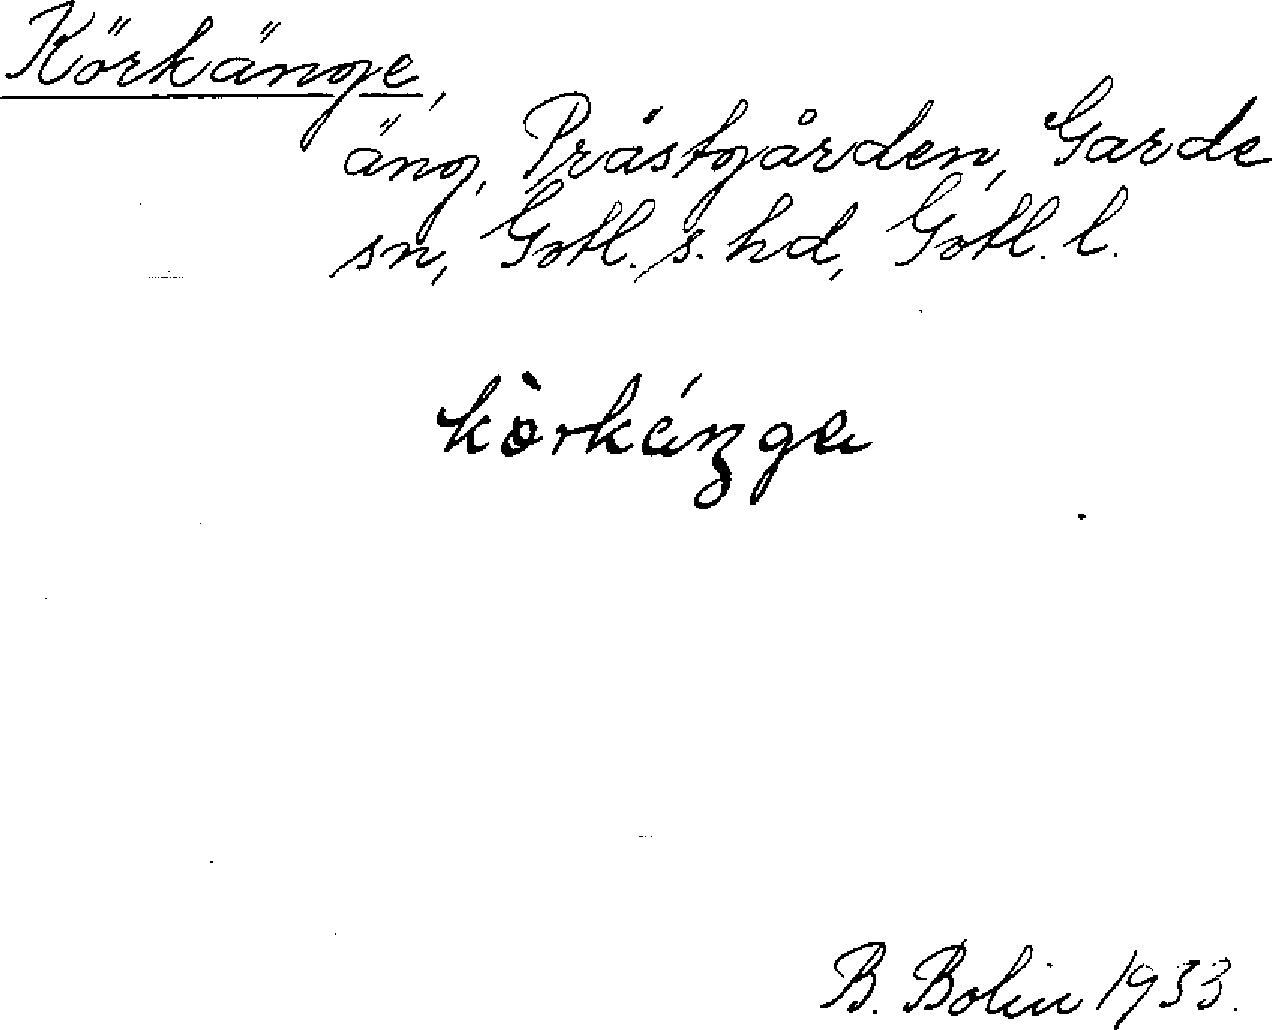 Körkänge,
äng, Prästgården, Garde
sn, Gotl. s. hd, Gotl. l.
B. Bolin 1933.